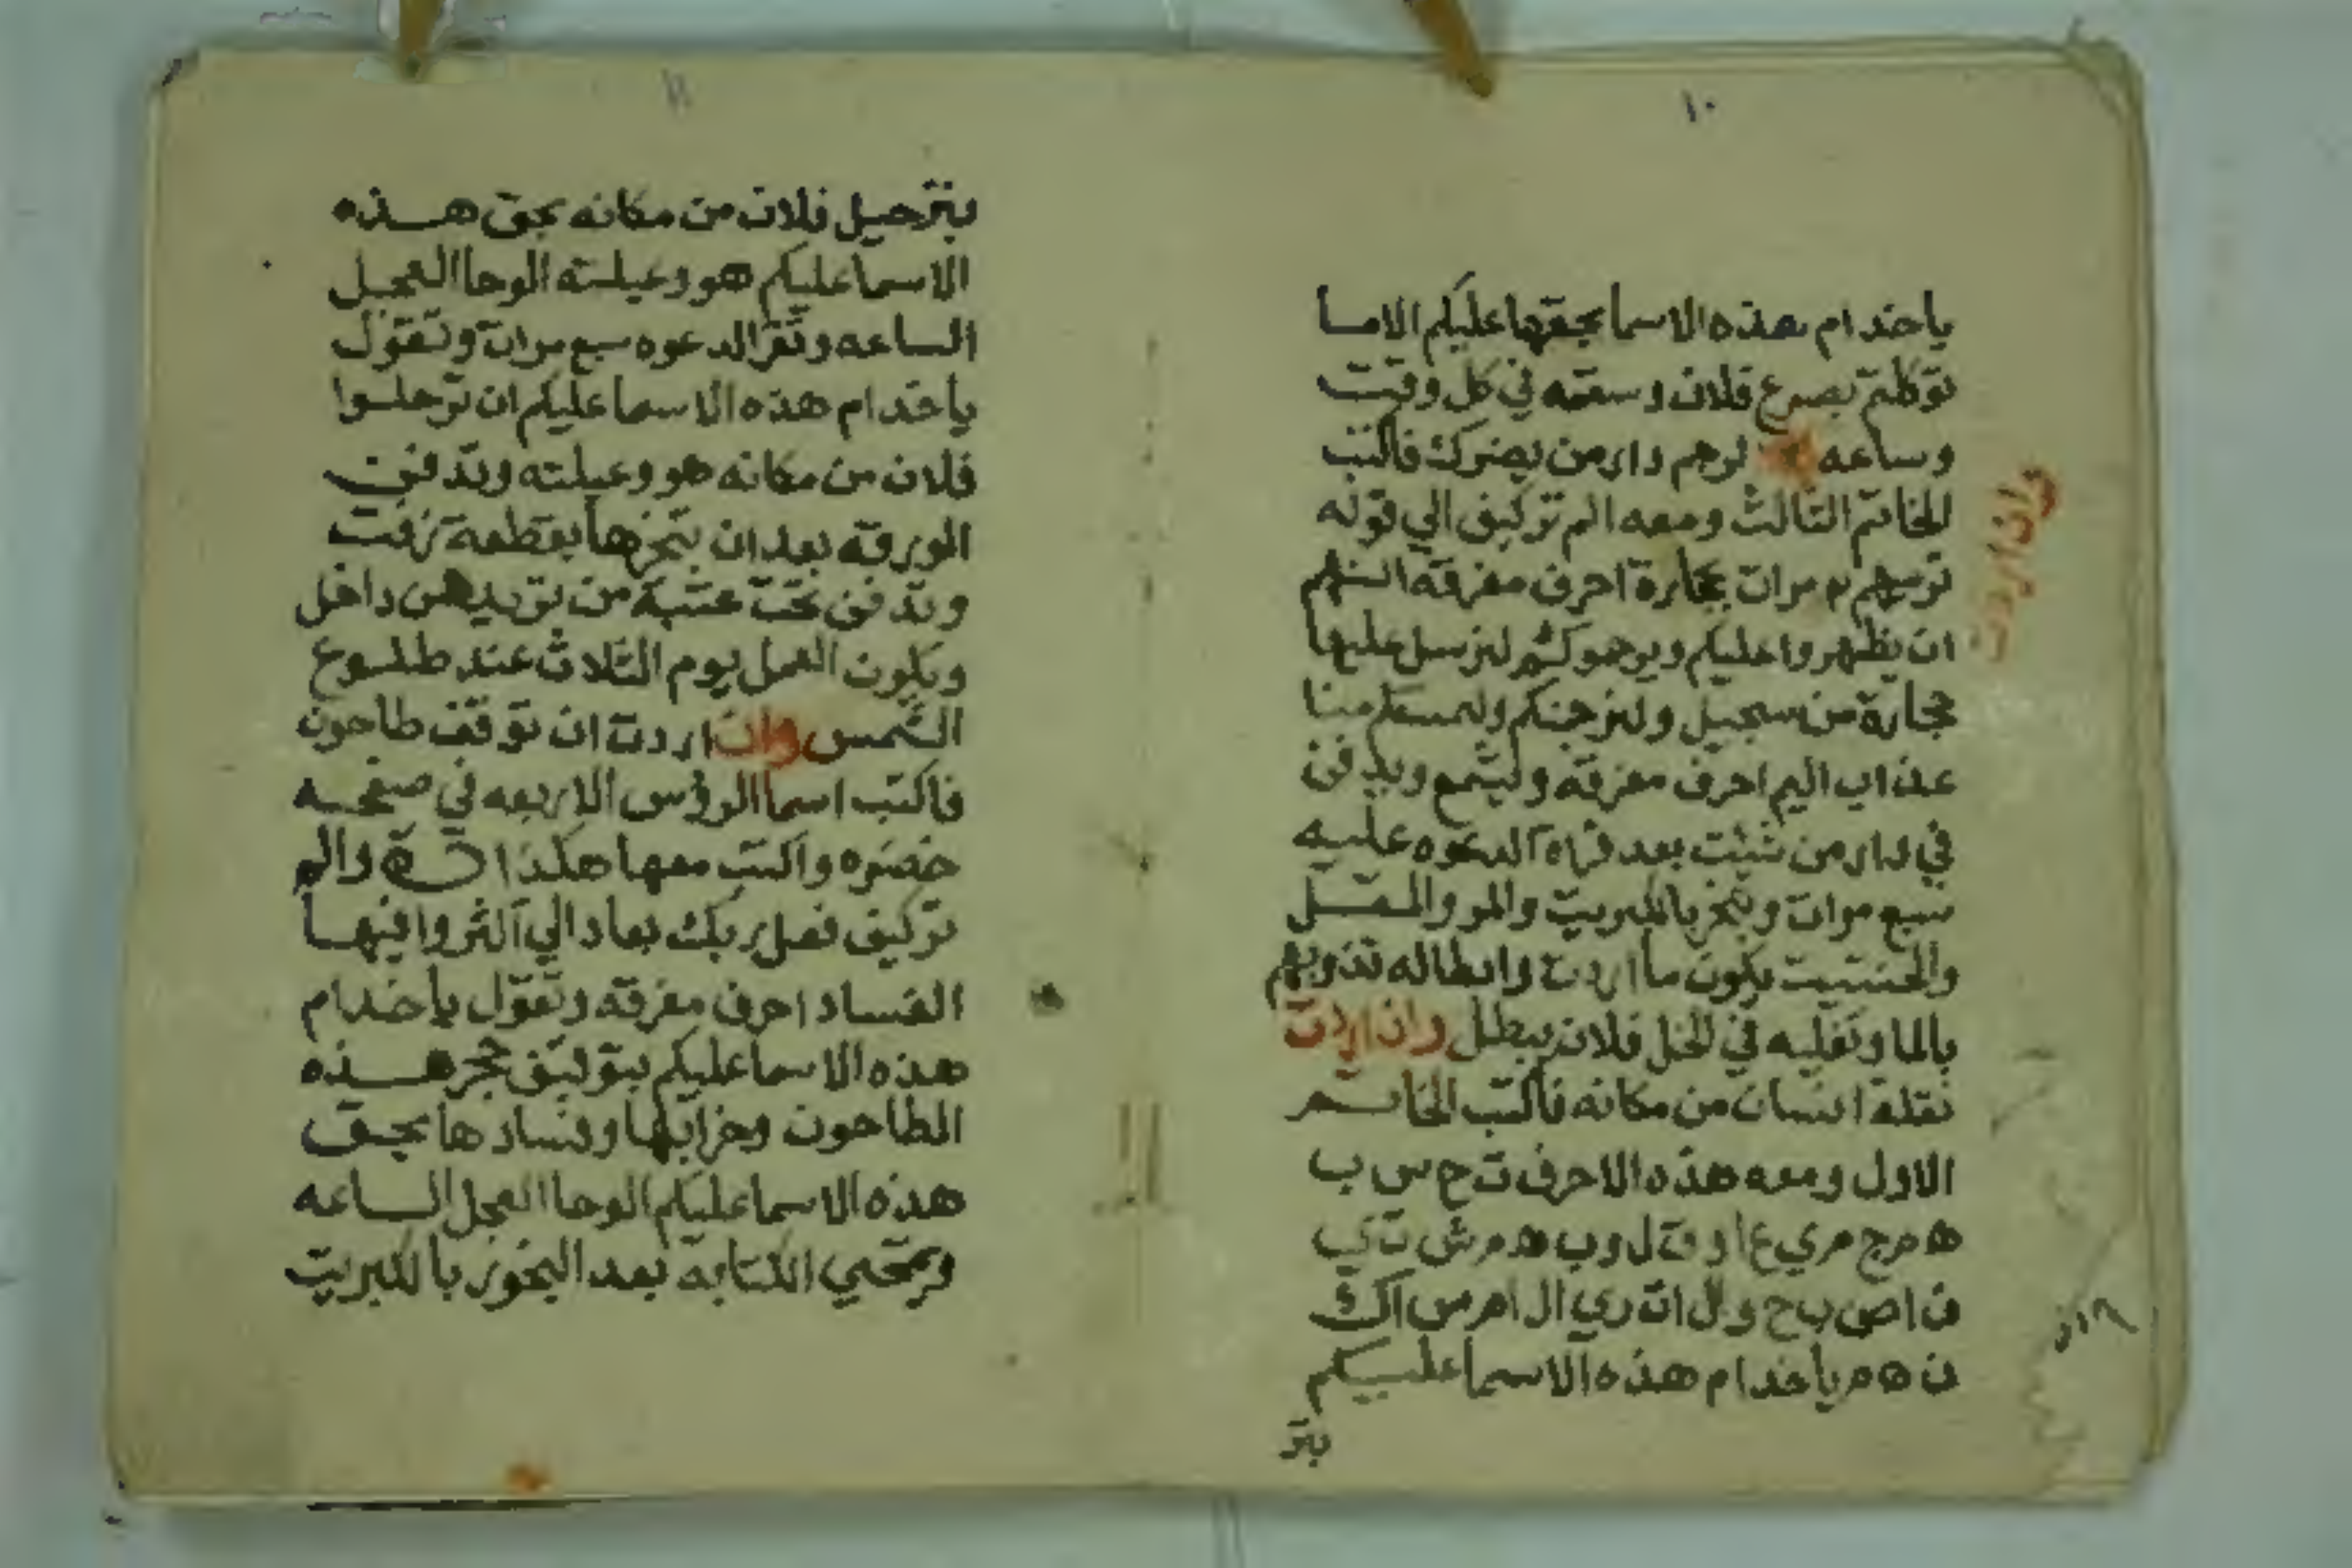 ١٠
ياخدام هذه الاسما بحقها عليكم الاما
توكلتم بصرع فلان وسقمه في كل وقت
وساعه لرجم دار من يضرك فاكتب
وان اردت
الخاتم الثالث ومعه الم تركيف الي قوله
ترميهم مرات بحجارة احرف مفرقه انهم
ان يظهروا عليكم ويرجموكم لنرسل عليها
حجارة من سجيل ولنرجمنكم وليمسنكم منا
عذاب اليم احرف مفرقه وليشمع ويدفن
في دار من شيت بعد قراه الدعوه عليه
سبع مرات وبخر بالكبريت والمر والمقل
والحنتيت يكون ما اردت وابطاله تذوبهم
بالما وتغليه في الخل فلان يبطل وان اردت
نقلة انسان من مكانه فاكتب الخاتم
الاول ومعه هذه الاحرف ت ح س ب
ه م ج م ي ع ا و ق ل و ب ه م ش ت ي
ف ا ص ب ح و ل ا ت ر ي ا ل ا م س ا ك
ن ه م ياخدام هذه الاسما عليكم
بتر
١١
بترحيل فلان من مكانه بحق هذه
الاسما عليكم هو وعيلته الوحا العجل
الساعه وتقرا الدعوه سبع مرات وتقول
ياخدام هذه الاسما عليكم ان ترحلوا
فلان من مكانه هو وعيلته وتدفن
الورقه بعد ان تبخرها بقطعة زفت
وتدفن تحت عتبة من تريد هي داخل
ويكون العمل يوم الثلاث عند طلوع
الشمس وان اردت ان توقف طاحون
فاكتب اسما الروس الاربعه في صفحه
خضره واكتب معها هكذا والم
تركيف فعل ربك بعاد الي اكثروا فيها
الفساد احرف مفرقه وتقول ياخدام
هذه الاسما عليكم بتوقيف حجر هذه
الطاحون وخرابها وفسادها بحق
هذه الاسما عليكم الوحا العجل الساعه
وتمحي الكتابه بعد البخور بالكبريت